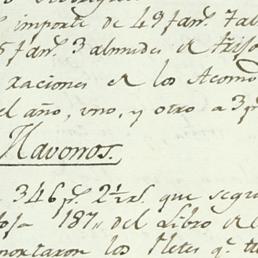 importe de 49 fan.s 7 al
5 fan.s 3 almudes de trigo
xaciones de los Acomo
el año, uno, y otro a 3 p
Navonos.
346 p.s 2½ rs. que segu
foja 187,, del Libro de
portaron los fletes q.e